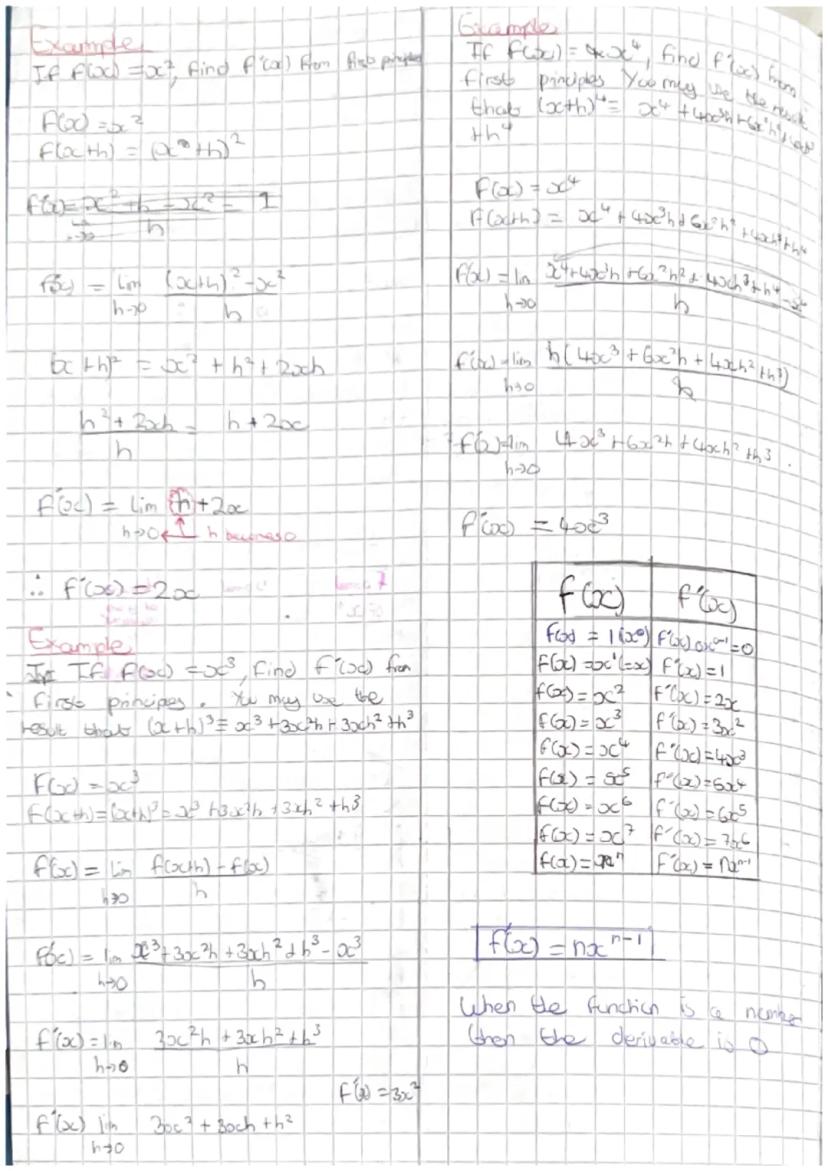 Example
If f(x) = x², find f'(x) from first principles
f(x) = x²
f(x+h) = (x+h)²
f'(x) = x² + h - x² = 1
h
f'(x) = lim (x+h)² - x²
h→0 h
(x+h)² = x² + h² + 2xh
h² + 2xh = h + 2x
h
f'(x) = lim h + 2x
h→0 h becomes 0
∴ f'(x) = 2x
Example
If f(x) = x³, find f'(x) from
first principes. You may use the
result that (x+h)³ ≡ x³ + 3x²h + 3xh² + h³
f(x) = x³
f(x+h) = (x+h)³ = x³ + 3x²h + 3xh² + h³
f'(x) = lim f(x+h) - f(x)
h→0 h
f'(x) = lim x³ + 3x²h + 3xh² + h³ - x³
h→0 h
f'(x) = lim 3x²h + 3xh² + h³
h→0 h
f'(x) = 3x²
f'(x) lim 3x² + 3xh + h²
h→0
Example
If f(x) = x⁴, find f'(x) from
first principles You may use the result
that (x+h)⁴ = x⁴ + 4x³h + 6x²h² + 4xh³
+h⁴
f(x) = x⁴
f(x+h) = x⁴ + 4x³h + 6x²h² + 4xh³ + h⁴
f'(x) = lim x⁴ + 4x³h + 6x²h² + 4xh³ + h⁴ - x⁴
h→0 h
f'(x) = lim h(4x³ + 6x²h + 4xh² + h³)
h→0 h
f'(x) = lim 4x³ + 6x²h + 4xh² + h³.
h→0
f'(x) = 4x³
f(x) f'(x)
f(x) = 1(x⁰) f'(x) 0x⁰⁻¹ = 0
f(x) = x¹(=x) f'(x) = 1
f(x) = x² f'(x) = 2x
f(x) = x³ f'(x) = 3x²
f(x) = x⁴ f'(x) = 4x³
f(x) = x⁵ f'(x) = 5x⁴
f(x) = x⁶ f'(x) = 6x⁵
f(x) = x⁷ f'(x) = 7x⁶
f(x) = xⁿ f'(x) = nxⁿ⁻¹
f'(x) = nxⁿ⁻¹
When the function is a number
then the derivable is 0